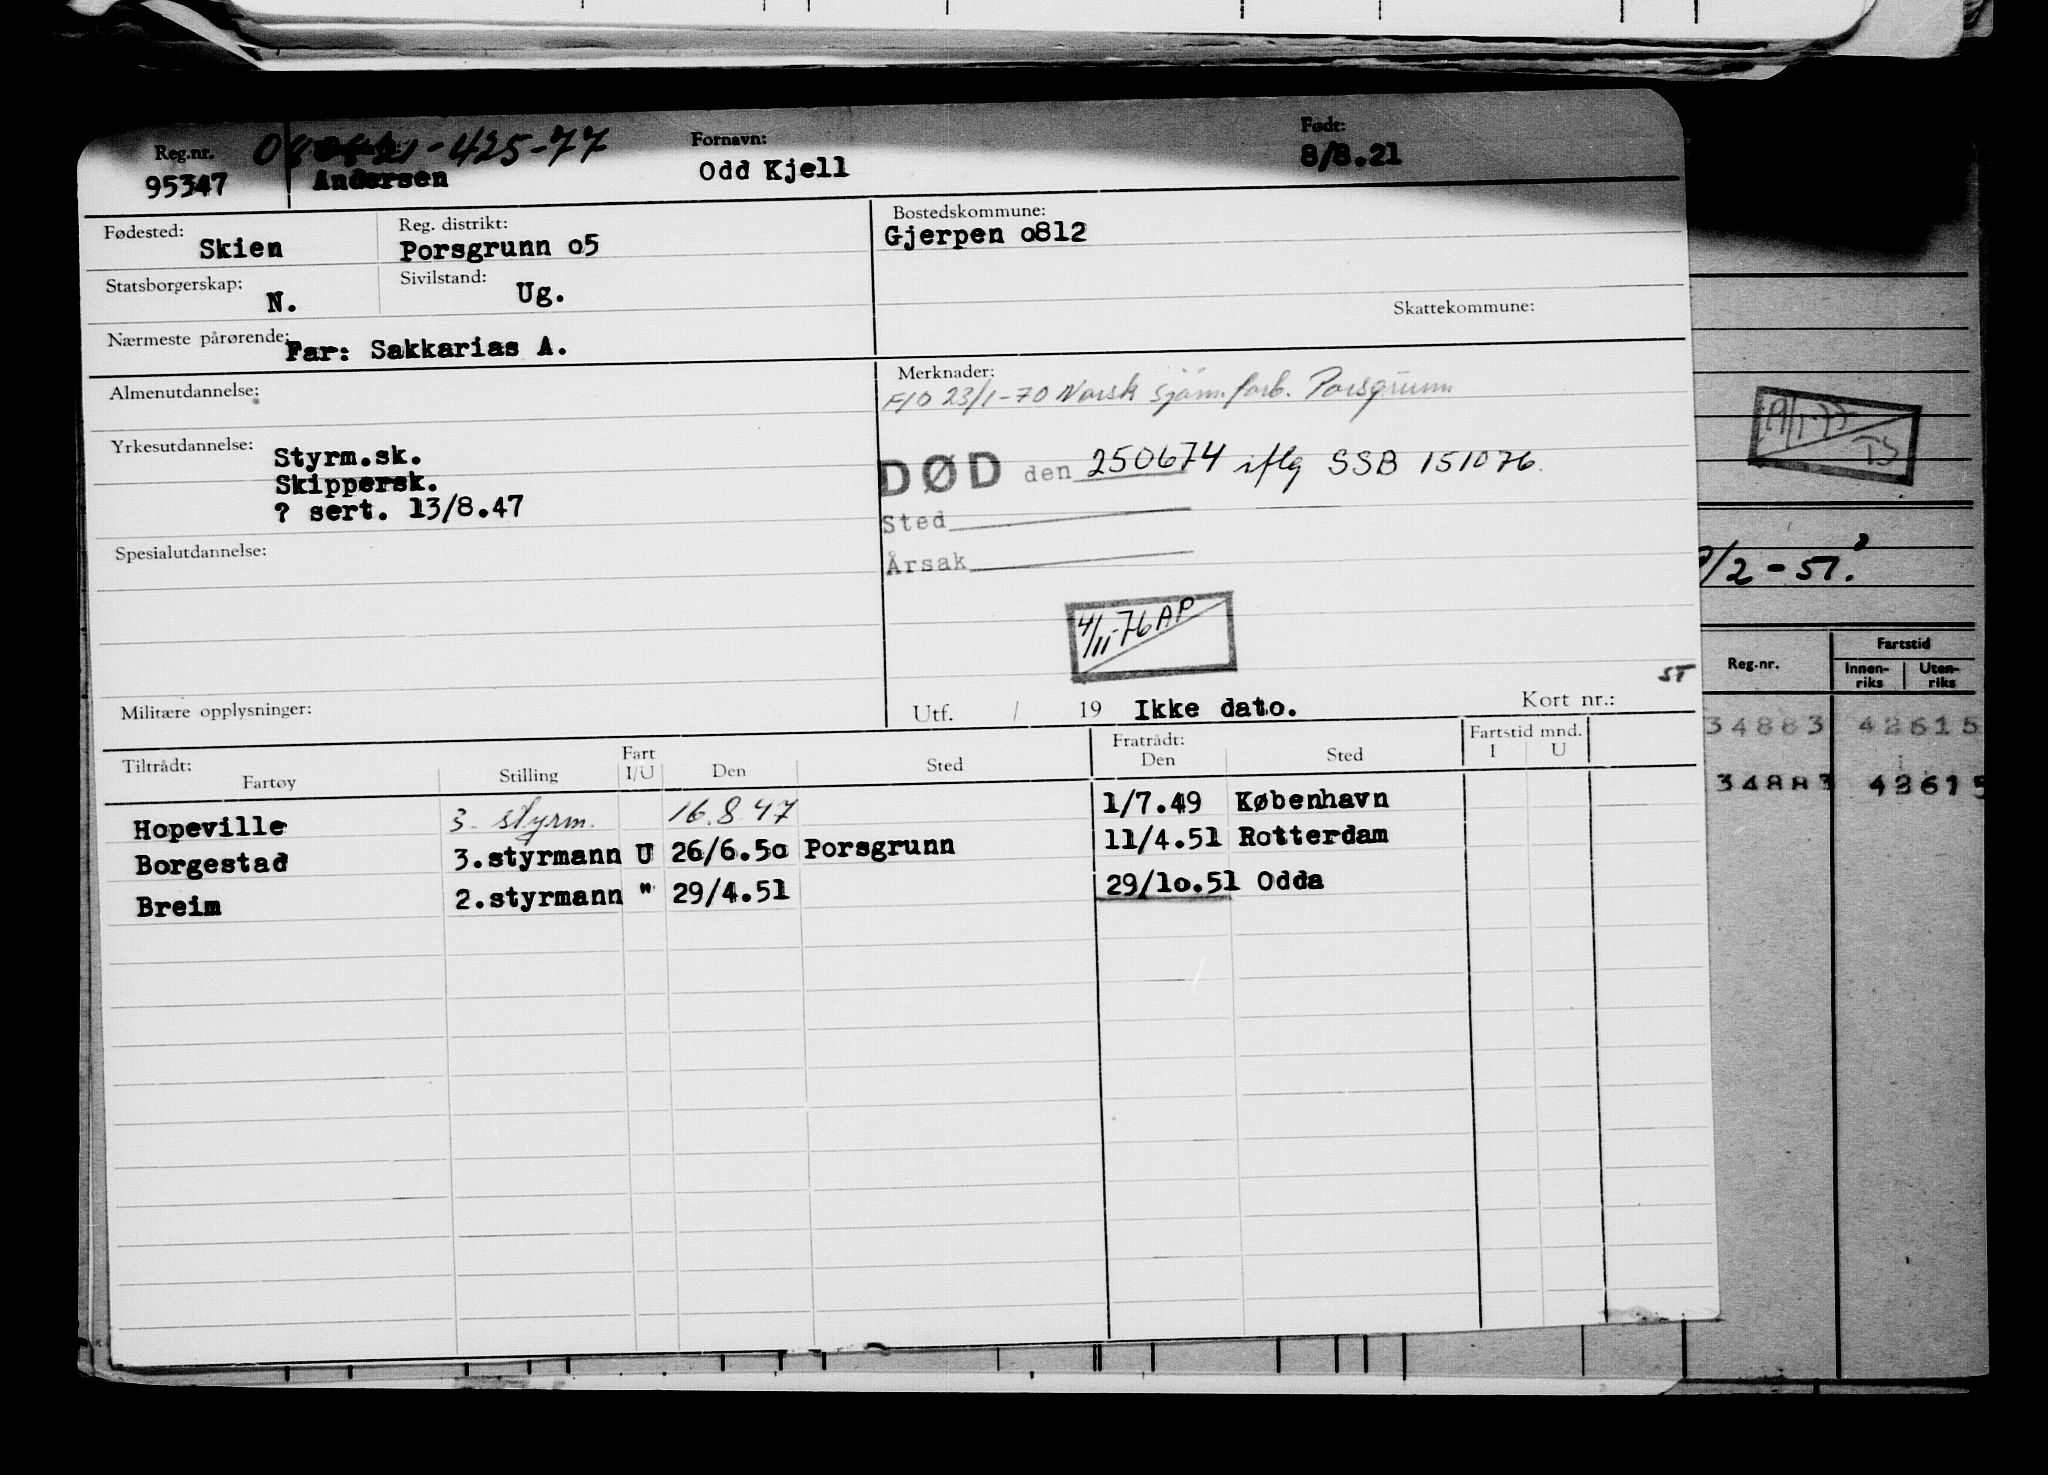 Reg.nr. 080821-425-77 Fornavn: Født:
95347 Andersen Odd Kjell 8/8.21
Fødested: Skien Reg. distrikt: Porsgrunn o5 Bostedskommune: Gjerpen o812
Statsborgerskap: N. Sivilstand: Ug.
Skattekommune:
Nærmeste pårørende: Far: Sakkarias A.
Almenutdannelse:
Merknader:
F/O 23/1-70 Norsk sjøm.forb. Porsgrunn
Yrkesutdannelse: Styrm.sk.
Skippersk.
? sert. 13/8.47
DØD den 250674 iflg SSB 151076.
Sted
Årsak
Spesialutdannelse:
4/11-76 AP
Militære opplysninger:
ST
Utf. / 19 Ikke dato. Kort nr.:
Tiltrådt: Fart Fratrådt: Fartstid mnd.
Fartøy Stilling I/U Den Sted Den Sted I U
Hopeville 3. styrm. 16.8 47 1/7.49 København
Borgestad 3.styrmann U 26/6.5o Porsgrunn 11/4.51 Rotterdam
Breim 2.styrmann " 29/4.51 29/1o.51 Odda
19/1-77
TS
/2-51.
Reg.nr. Fartstid
Innen-riks Uten-riks
34883 42615
34883 42615